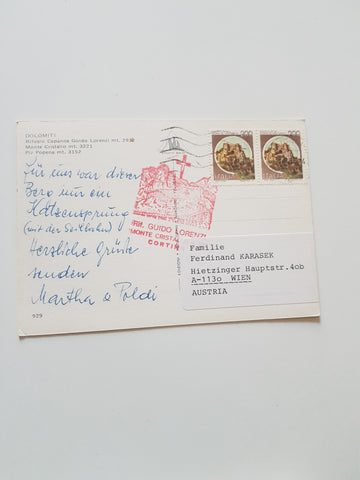 DOLOMITI
Rifugio Capanna Guido Lorenzi mt. 2932
Monte Cristallo mt. 3221
Piz Popena mt. 3152
Für uns war dieser
Berg nur ein
Katzensprung
(mit der Seilbahn)
Herzliche Grüße
senden
Martha & Poldi
929
RIF. GUIDO LORENZI
MONTE CRISTAL
CORTIN
Familie
Ferdinand KARASEK
Hietzinger Hauptstr.40b
A-1130 WIEN
AUSTRIA